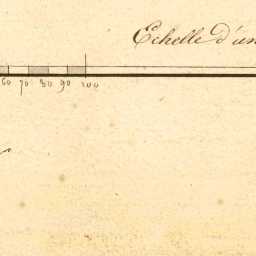 Echelle d'un
60 70 80 90 100